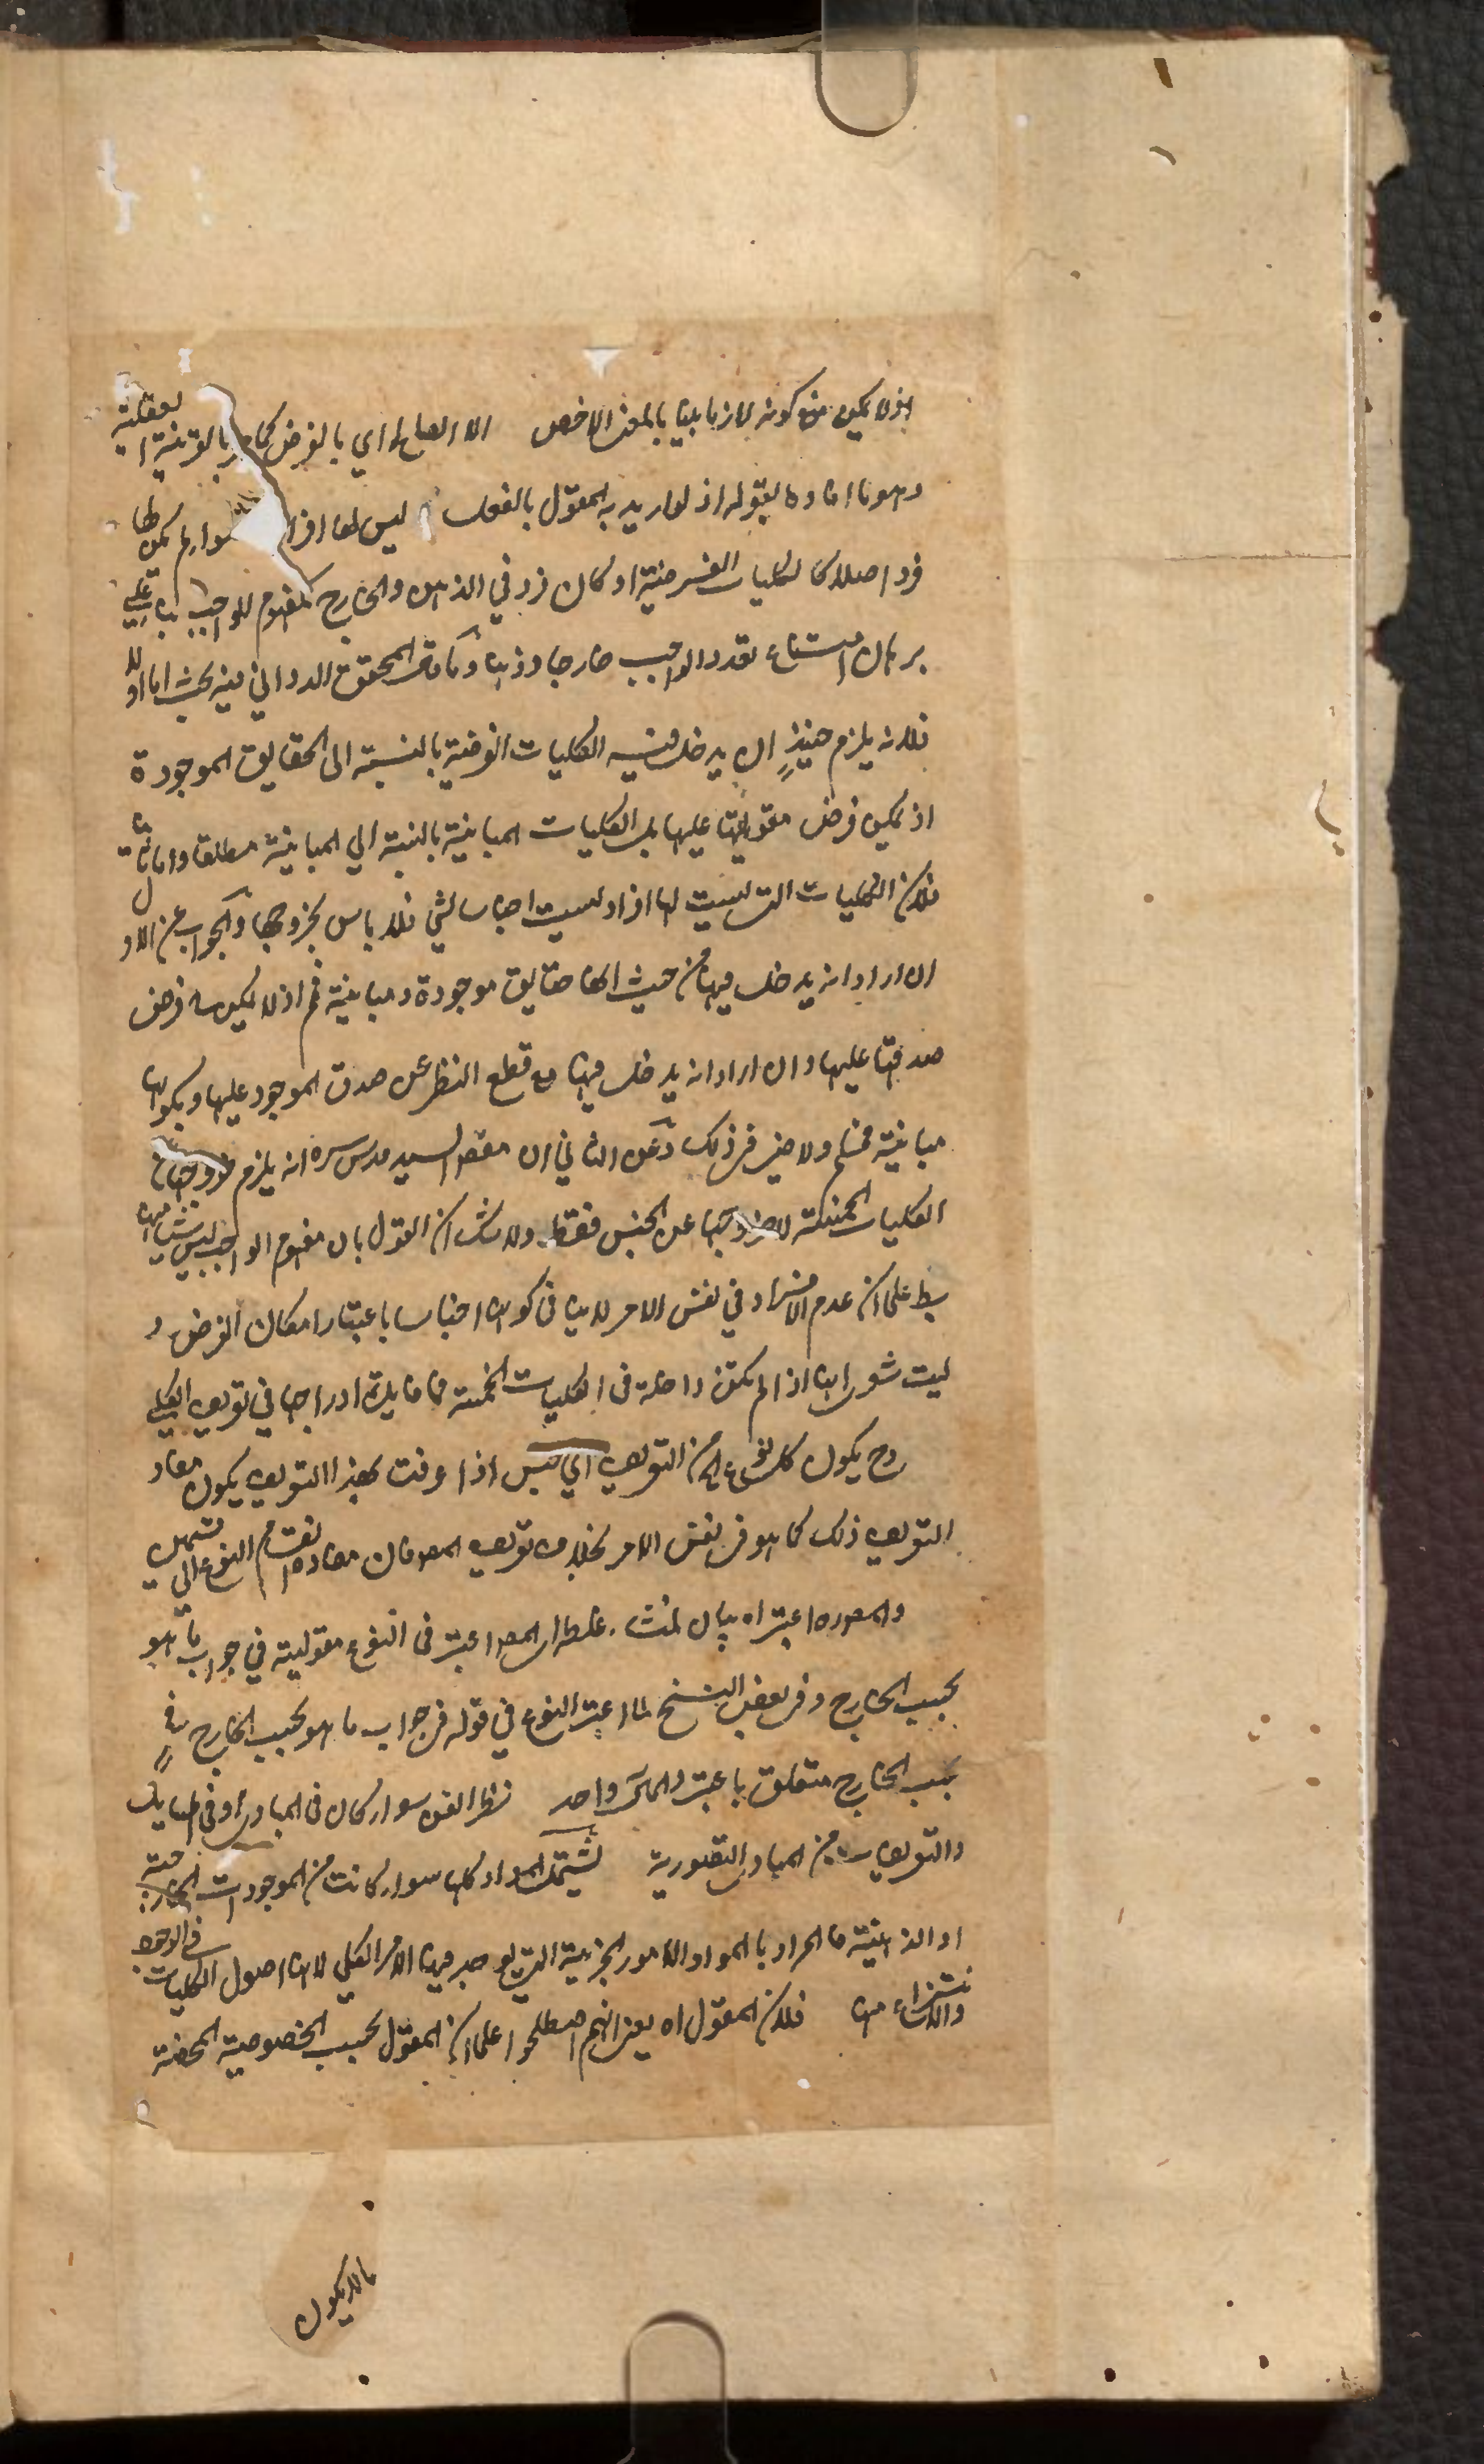 اذ لا يمكن منع كونه لازما بينا بالمعنى الاخص الا الصالح اي بالفرض كما مر بالقرينة العقلية
وهو ما افاده بقوله اذ لو اريد به المقول بالفعل ليس لها افراد سواء لم يكن لها
فرد اصلا كالكليات الفرضية او كان فرد في الذهن والخارج كمفهوم الواجب بناء على
برهان امتناع تعدد الواجب خارجا وذهنا وآما قال المحقق الدواني فيه بحث اما اولا
فلانه يلزم حينئذ ان يدخل فيه الكليات الفرضية بالنسبة الى الحقايق الموجودة
اذ يمكن فرض مقوليتها عليها بل الكليات المباينة بالنسبة الى المباينة مطلقا واما ثانيا
فلان الكليات التي ليست لها افراد ليست اجناسا لشيء فلا باس بخروجها والجواب عن الاول
ان اراد انه يدخل فيها من حيث انها حقايق موجودة ومباينة فم اذ لا يمكن فرض
صدقها عليها وان اراد انه يدخل فيها مع قطع النظر عن صدق الموجود عليها وبكونها
مباينة فمسلم ولا ضير في ذلك وعن الثاني ان مقصود السيد قدس سره انه يلزم خروجها عن
الكليات الخمسة لا خروجها عن الجنس فقط ولا شك ان القول بان مفهوم الواجب ليس شيئا منها
سيما على ان عدم الافراد في نفس الامر لا ينافي كونها اجناسا باعتبار امكان الفرض و
ليت شعري انها اذا لم تكن داخلة في الكليات الخمسة فما فايدة ادراجها في تعريف الكلي
وح يكون كل نوع اه من التعريف اي جنس اذا عرفت بهذا التعريف يكون مفاد
التعريف ذلك كما هو في نفس الامر بخلاف تعريف المص فان مفاده انقسام النوع الى قسمين
والمص وره اعتبر اه بيان لمنشاء غلطه ان المص اعتبر في النوع مقوليته في جواب ما هو
بحسب الخارج وفي بعض النسخ لما اعتبر النوع في قوله في جواب ما هو بحسب الخارج فح
بحسب الخارج متعلق باعتبر والمآل واحد نظر الفن سواء كان في المبادي او في المسايل
والتعريفات من المبادي التصورية لتشتمل المواد كلها سواء كانت من الموجودات الخارجية
او الذهنية فالمراد بالمواد الامور الجزئية التي يوجد فيها الامر الكلي لانها اصول الكليات في الوجود
والانتزاع منها فلان المقول اه يعني انهم اصطلحوا على ان المقول بحسب الخصوصية المحضة
ما لا يكون